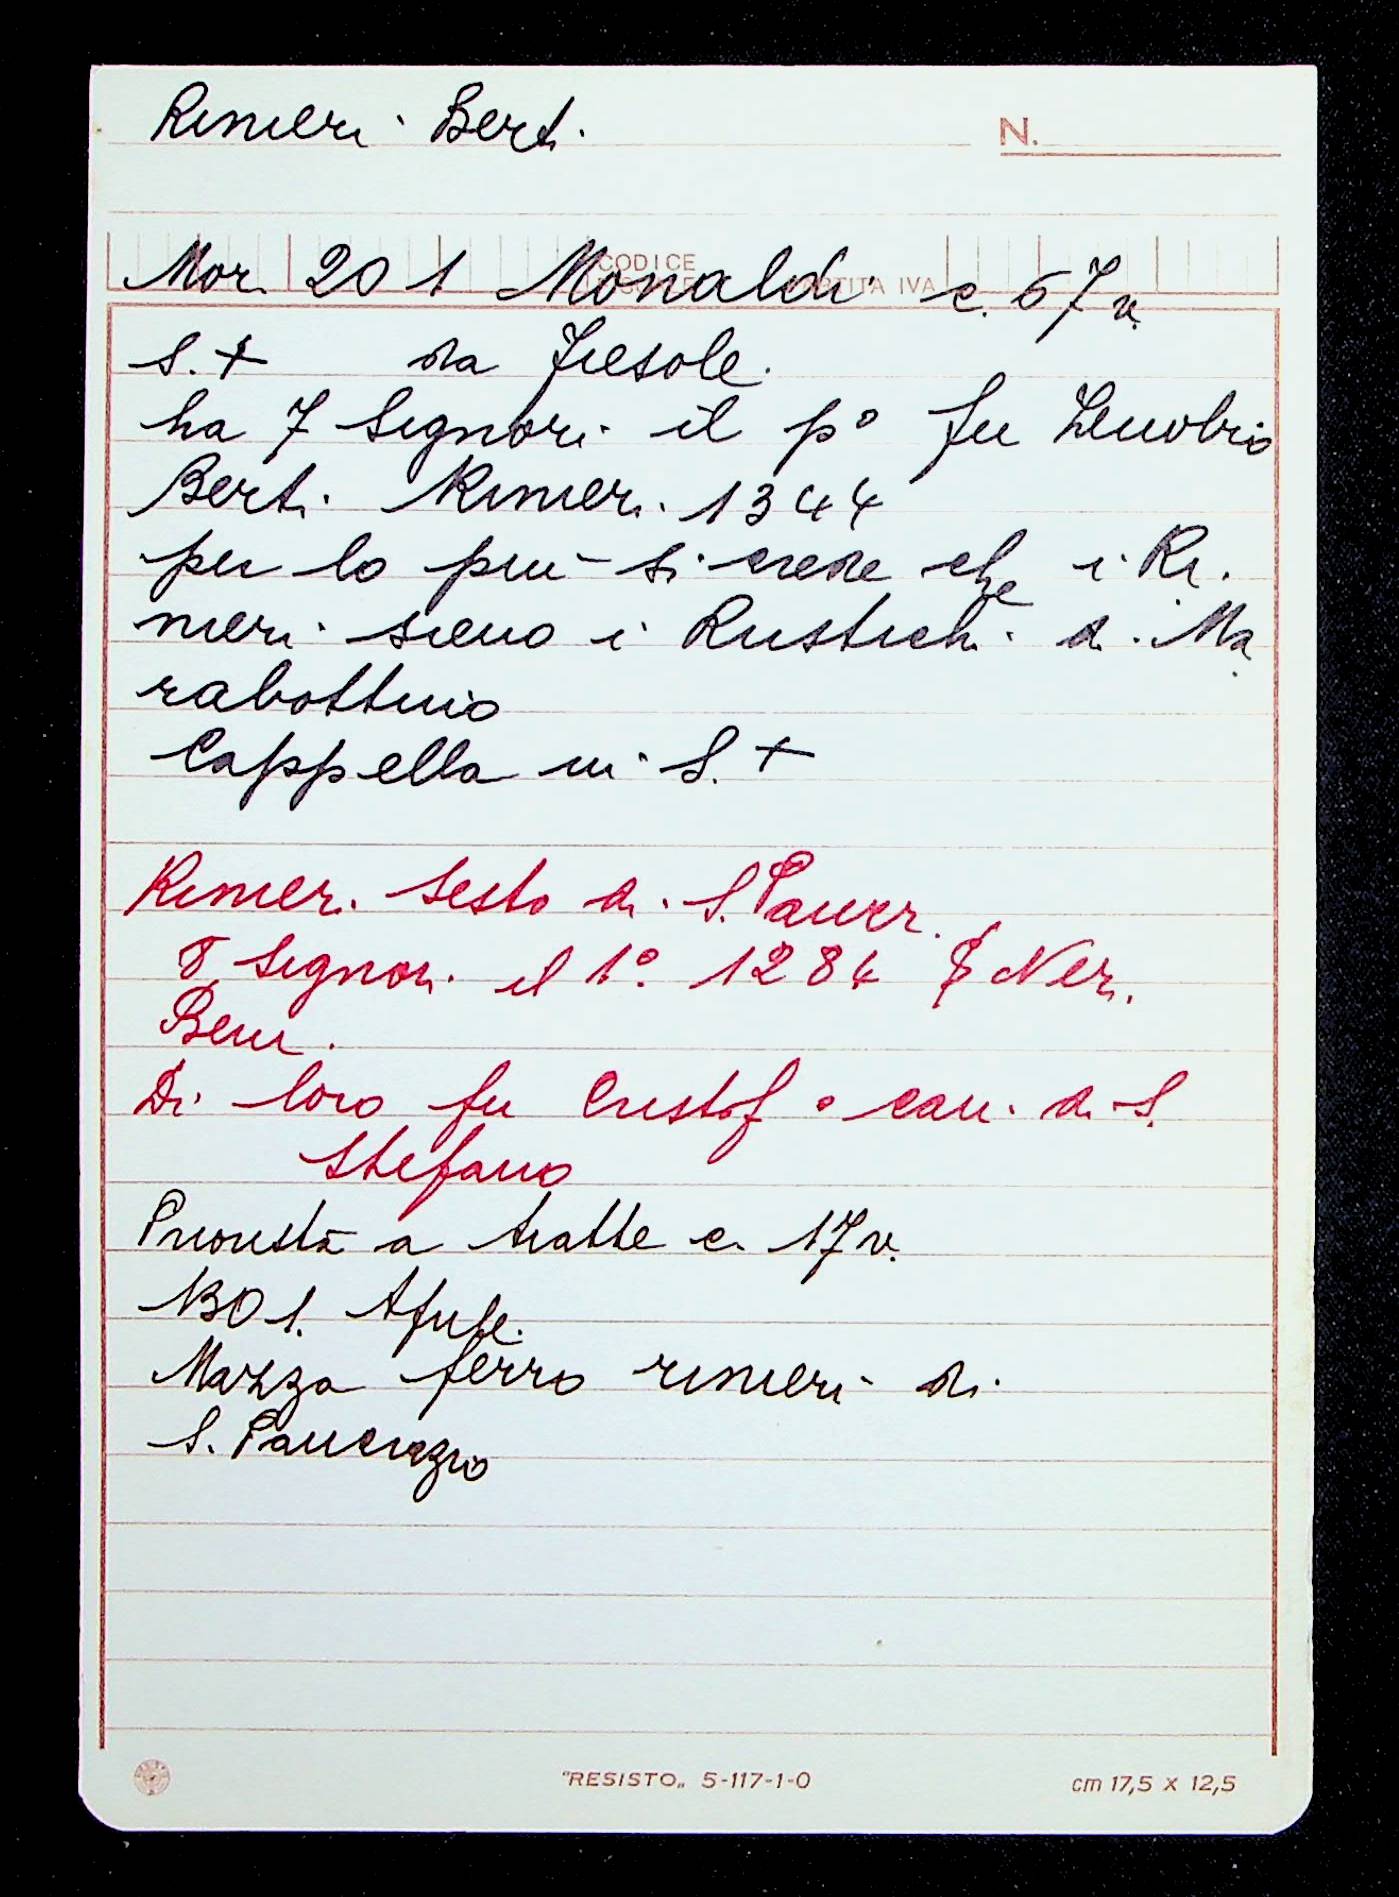 Rinieri Berti
N.
CODICE
PARTITA IVA
Mor. 201 Monaldi c. 67v.
S. + da Fiesole.
ha 7 Signori il p° fu Zenobio
Berti Rinieri 1344
per lo più si crede che i Ri.
nieri sieno i Rustichi di Ma
rabottino
Cappella in S. +
Rinieri Sesto di S. Pancr.
8 Signori il 1° 1284 Neri
Beni.
Di loro fu Cristof° cav. di S.
Stefano
Priorista a tratte c. 17v.
1301.
Mazza ferro rinieri di
S. Pancrazio
"RESISTO„ 5-117-1-0
cm 17,5 x 12,5